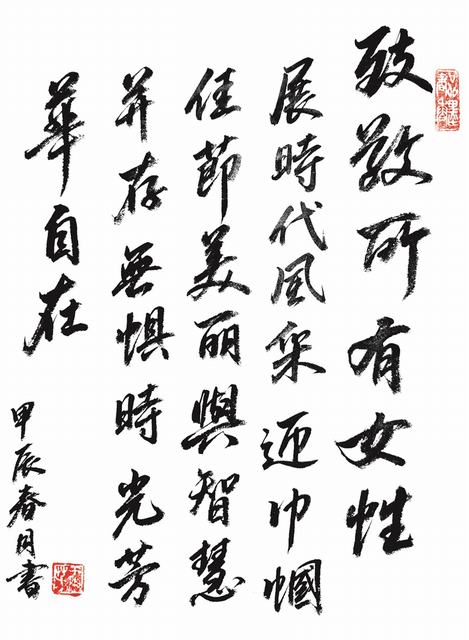 致敬所有女性
展時代風采迎巾幗
佳節美丽與智慧
并存無惧時光芳
華自在
甲辰春月書